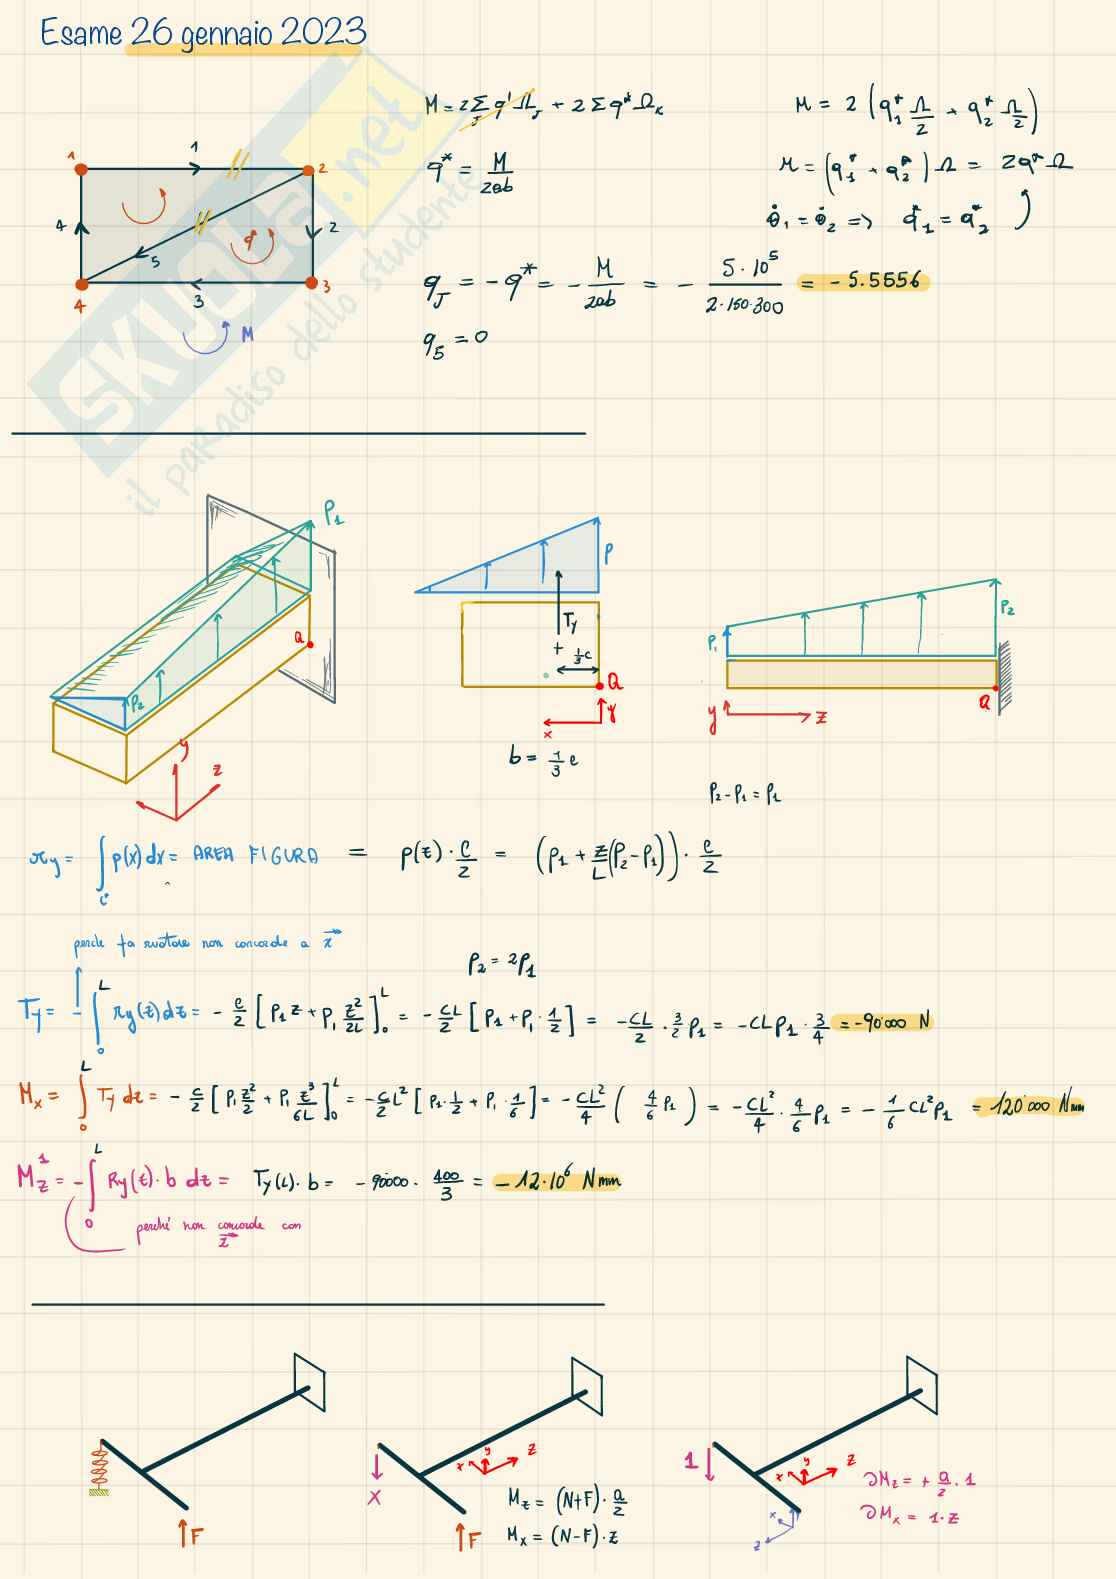 Esame 26 gennaio 2023
M = 2 Σ_J q' Ω_J + 2 Σ q* Ω_K
M = 2 (q*_1 Ω/2 + q*_2 Ω/2)
q* = M/2ab
M = (q*_1 + q*_2) Ω = 2q* Ω
θ̇_1 = θ̇_2 => q*_1 = q*_2
q_J = - q* = - M/2ab = - 5·10^5/2·150·300 = - 5.5556
q_5 = 0
1
1
2
4
5
q*
2
4
3
3
M
SKUOLA.net
il paradiso dello studente
P1
Q
P2
y
z
P
Ty
+
1/3 c
Q
y
x
b = 1/3 c
P1
P2
Q
y
z
P2 - P1 = P1
ry = ∫_c p(x) dx = AREA FIGURA = p(z) · c/2 = (P1 + z/L (P2 - P1)) · c/2
perché fa ruotare non concorde a x
P2 = 2P1
Ty = - ∫_0^L ry(z) dz = - c/2 [P1 z + P1 z²/2L]_0^L = - cL/2 [P1 + P1 · 1/2] = - cL/2 · 3/2 P1 = - cLP1 · 3/4 = -90'000 N
Mx = ∫_0^L Ty dz = - c/2 [P1 z²/2 + P1 z³/6L]_0^L = - c/2 L² [P1 · 1/2 + P1 · 1/6] = - cL²/4 (4/6 P1) = - cL²/4 · 4/6 P1 = - 1/6 cL²P1 = 120'000 Nmm
M_z^1 = - ∫_0^L Ry(z) · b dz = Ty(L) · b = - 90000 · 400/3 = - 12·10^6 Nmm
perché non concorde con z
F
X
x
y
z
F
Mz = (N+F) · a/2
Mx = (N-F) · z
1
x
y
z
x
z
∂Mz = + a/2 · 1
∂Mx = 1 · z